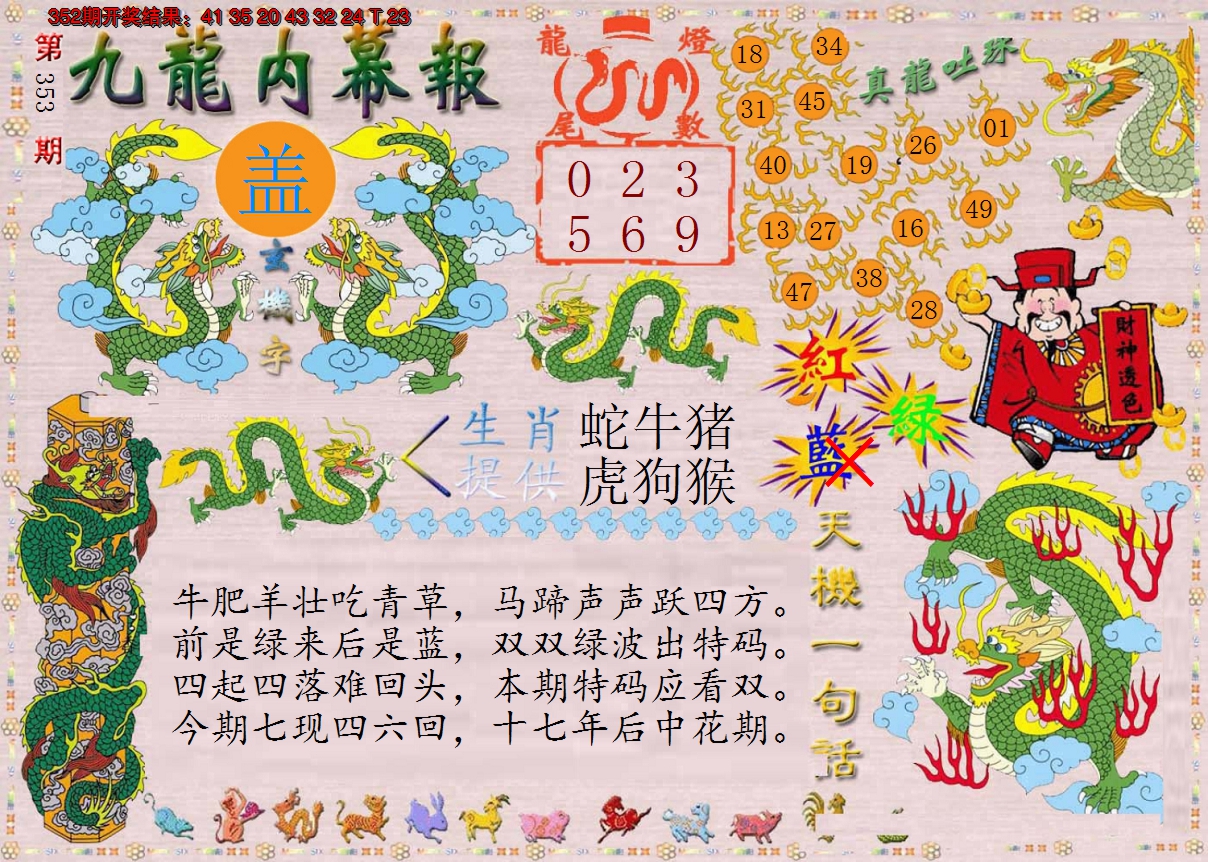 352期开奖结果：41 35 20 43 32 24 T 23
第353期
九龍内幕報
盖
玄機字
龍燈
尾數
0 2 3
5 6 9
真龍吐珠
18 34
31 45
26 01
40 19
49
13 27 16
38
47 28
財神透色
紅
绿
藍
生肖 蛇牛猪
提供 虎狗猴
天機一句话
牛肥羊壮吃青草，马蹄声声跃四方。
前是绿来后是蓝，双双绿波出特码。
四起四落难回头，本期特码应看双。
今期七现四六回，十七年后中花期。